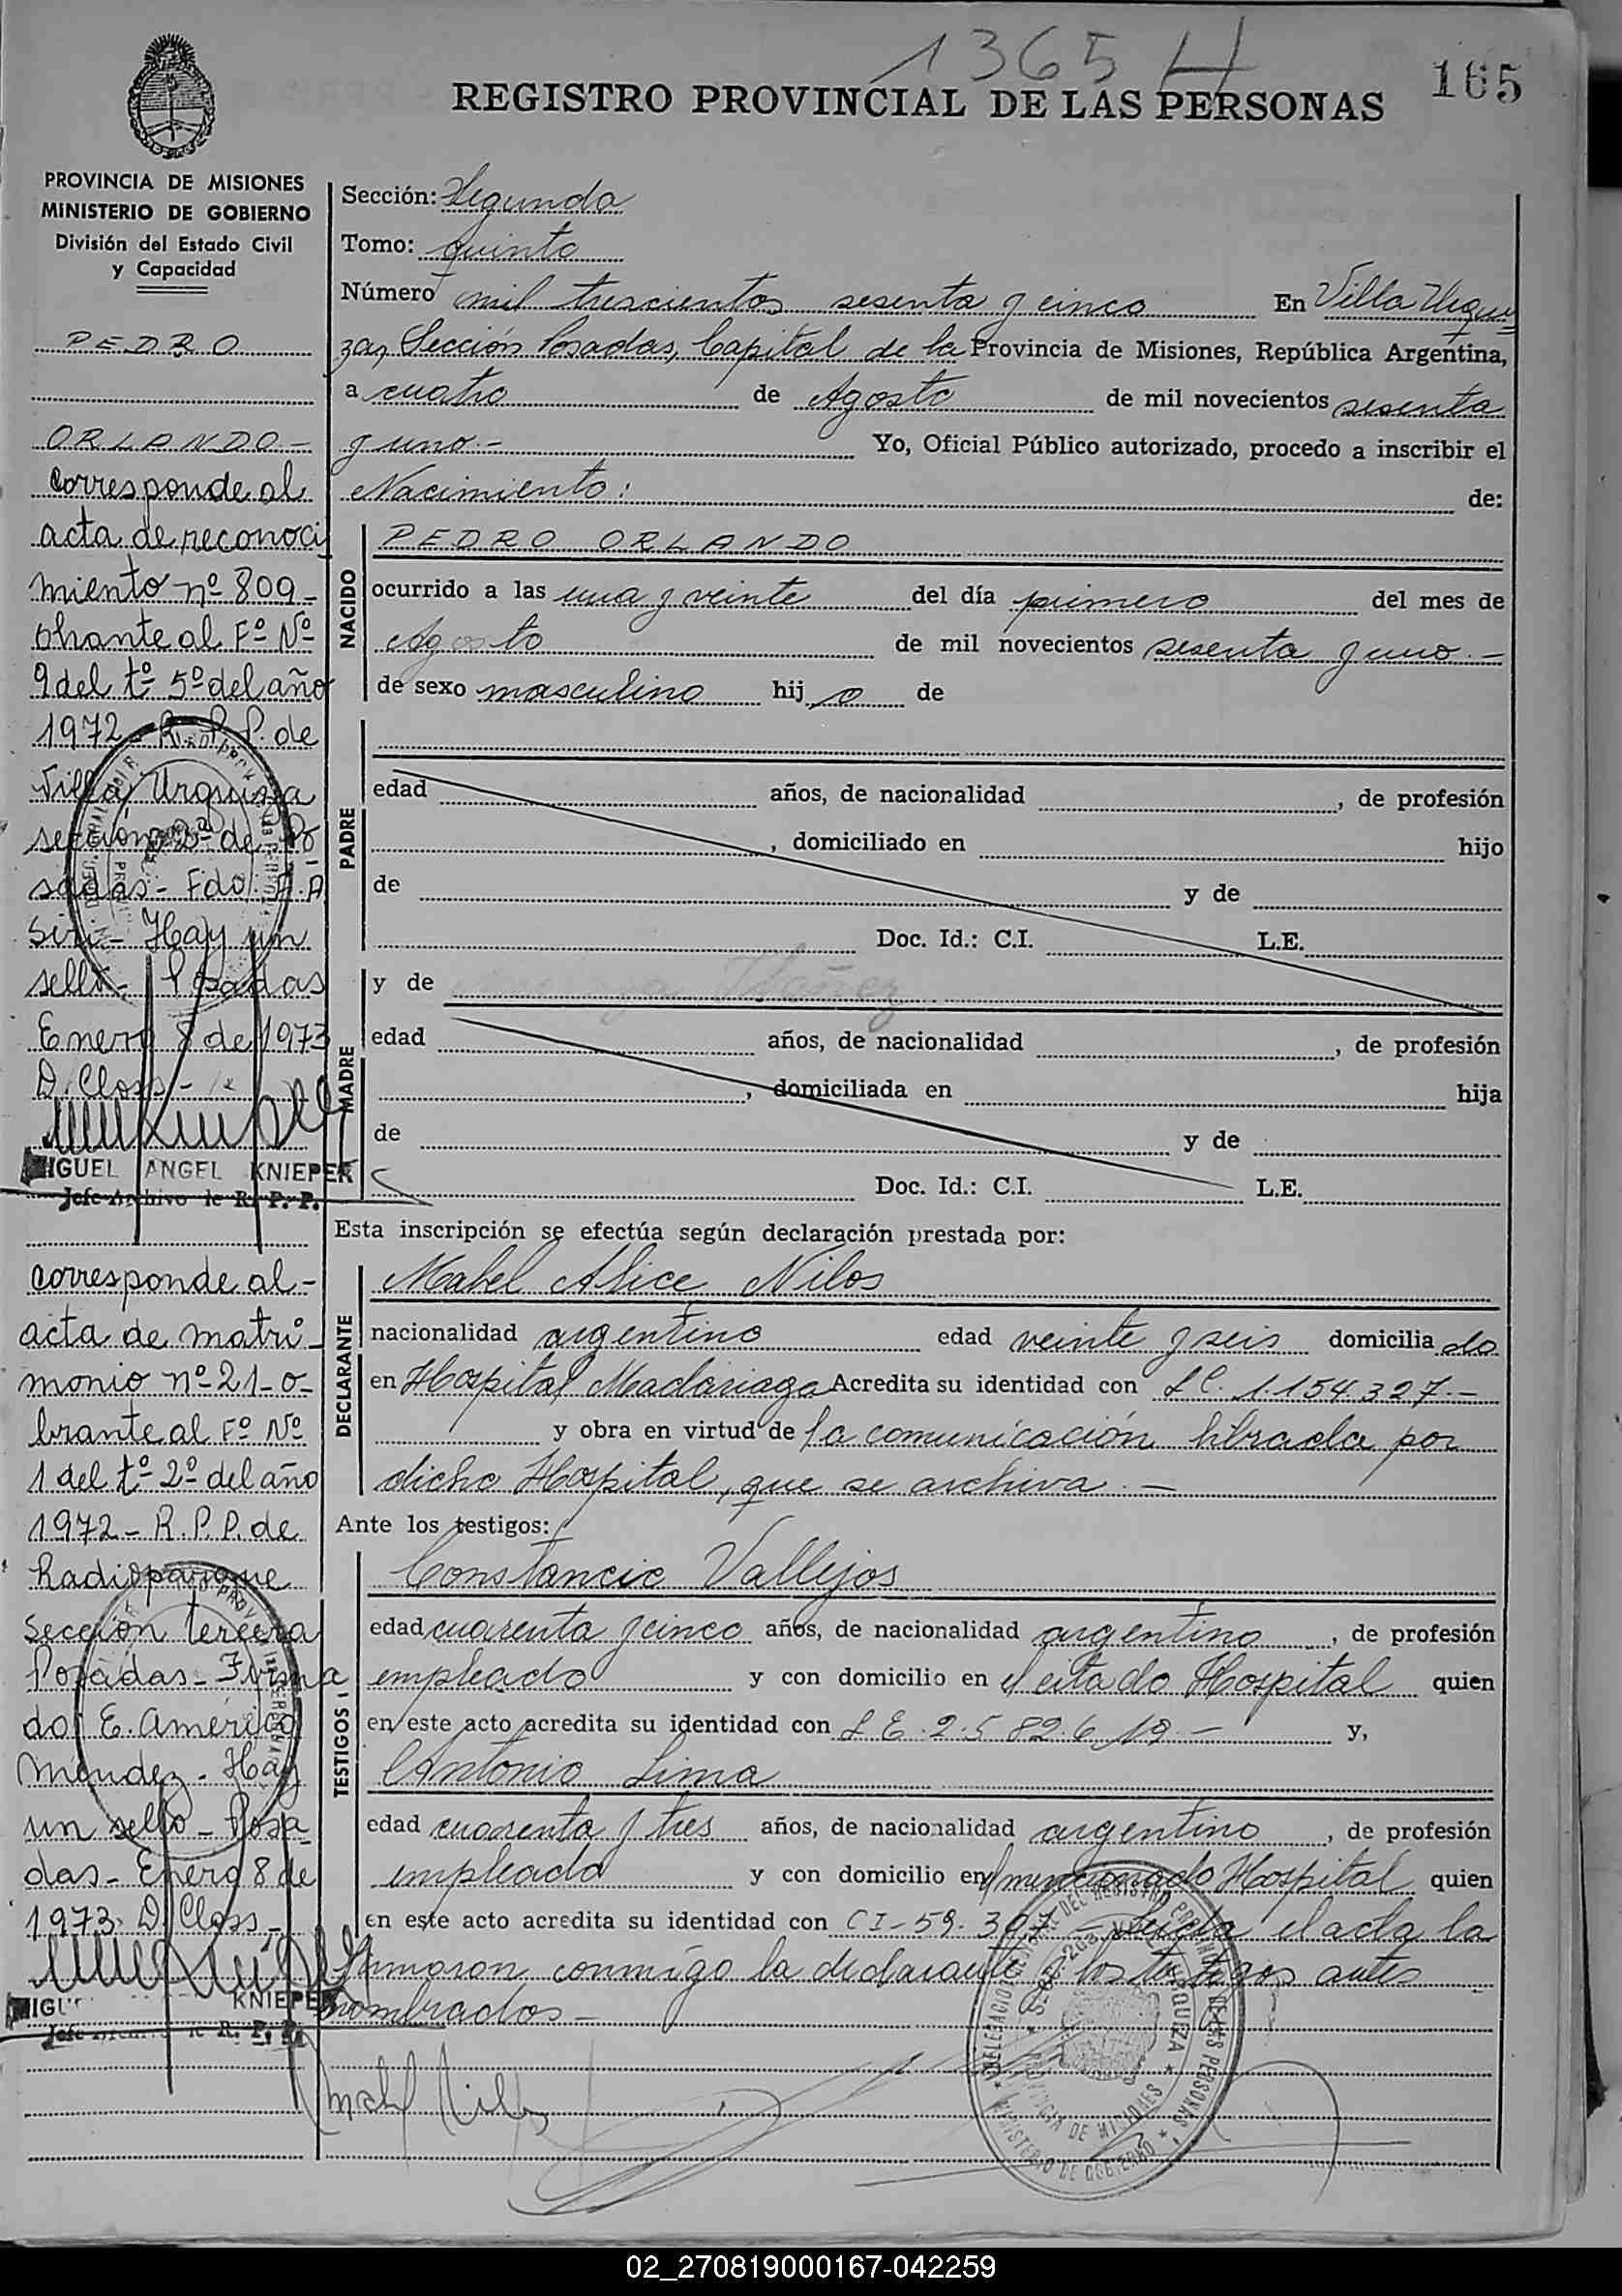 1365 H
165
REGISTRO PROVINCIAL DE LAS PERSONAS
PROVINCIA DE MISIONES
MINISTERIO DE GOBIERNO
División del Estado Civil
y Capacidad
PEDRO
ORLANDO.-
corresponde al
acta de reconoci
miento nº 809-
obrante al Fº Nº
9 del tº 5º del año
1972 - R. P. P. de
Villa Urquiza
sección 2ª de Po
sadas - Fdo. A. A
Siri - Hay un
sello - Posadas
Enero 8 de 1973
D. Closs -
MIGUEL ANGEL KNIEPER
Jefe Archivo de R. P. P.
corresponde al-
acta de matri-
monio nº 21-o-
brante al Fº Nº
1 del tº 2º del año
1972 - R. P. P. de
Radioparque
Sección tercera
Posadas - Firma
do: E. Américo
Méndez - Hay
un sello - Posa
das - Enero 8 de
1973. D. Closs -
KNIEPER
Jefe R. P. P.
Sección: Segunda
Tomo: quinto
Número mil trescientos sesenta y cinco En Villa Urqui-
za, Sección Posadas, Capital de la Provincia de Misiones, República Argentina,
a cuatro de Agosto de mil novecientos sesenta
y uno.- Yo, Oficial Público autorizado, procedo a inscribir el
Nacimiento: de:
NACIDO
PEDRO ORLANDO
ocurrido a las una y veinte del día primero del mes de
Agosto de mil novecientos sesenta y uno.-
de sexo masculino hij o de
PADRE
edad años, de nacionalidad , de profesión
, domiciliado en hijo
de y de
Doc. Id.: C.I. L.E.
MADRE
y de Ibañez
edad años, de nacionalidad , de profesión
, domiciliada en hija
de y de
Doc. Id.: C.I. L.E.
Esta inscripción se efectúa según declaración prestada por:
DECLARANTE
Mabel Alice Nilos
nacionalidad argentino edad veinte y seis domicilia do
en Hospital Madariaga Acredita su identidad con L C. 1.154.327.-
y obra en virtud de la comunicación librada por
dicho Hospital, que se archiva.-
Ante los testigos:
TESTIGOS
Constancio Vallejos
edad cuarenta y cinco años, de nacionalidad argentino , de profesión
empleado y con domicilio en el citado Hospital quien
en este acto acredita su identidad con L E. 2.582.619.- y,
Antonio Lima
edad cuarenta y tres años, de nacionalidad argentino , de profesión
empleado y con domicilio en el mencionado Hospital quien
en este acto acredita su identidad con CI-59.397 - Leída el acta la
firmaron conmigo la declarante y los testigos antes
nombrados -
Mabel Nilos
02_270819000167-042259